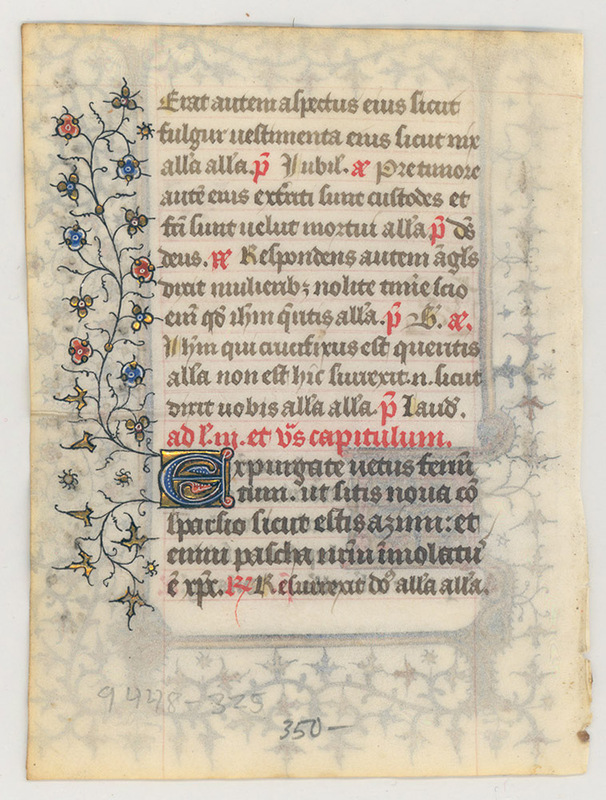 Erat autem aspectus eius sicut
fulgur uestimenta eius sicut nix
alla alla. p̃ Iubil. æ Pre timore
autē eius exťriti sunt custodes et
fc̄i sunt uelut mortui alla p̃ ds̄
deus. æ Respondens autem āgls
dixit mulierib; nolite tim̄e scio
eni qd̄ ihm̄ qr̄itis alla. p̃ B. æ.
Ihm̄ qui crucifixus est queritis
alla non est hic surrexit. n. sicut
dixit uobis alla alla. p̃ Laud.
ad l. iii. et vs̄ capitulum.
Expurgate uetus fermē
tum. ut sitis noua cō
sparsio sicut estis azimi: et
enim pascha nr̄m īmolatū
ē xp̄c. R Resurrexit do alla alla.
9448-325
350-